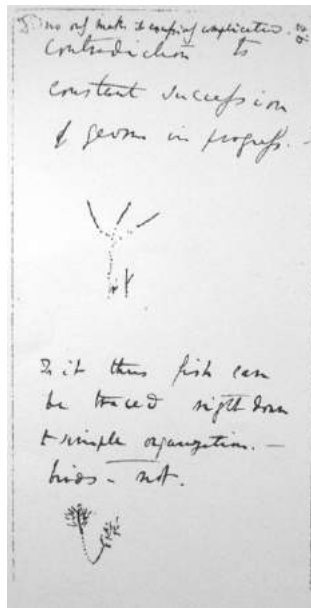 no only makes it excessively complicated.
contradiction to
constant succession
of germs in progress. —
Is it thus fish can
be traced right down
to simple organization. —
birds — not.